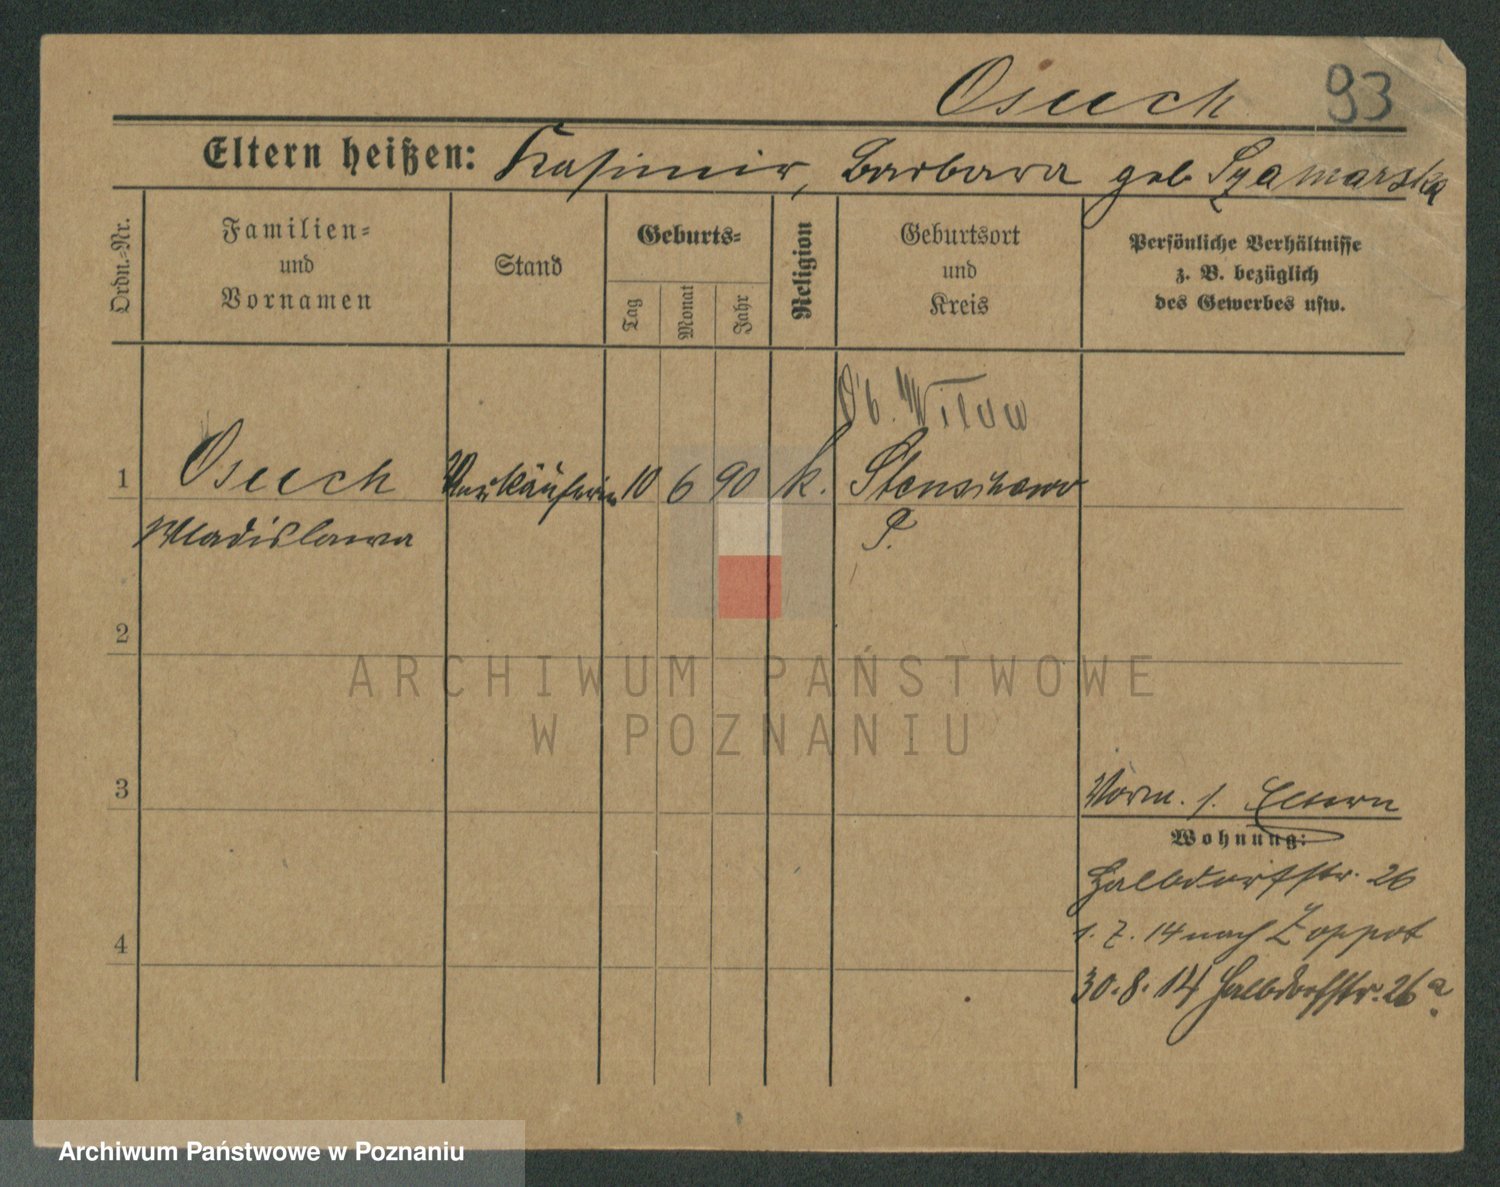 Osuch 93
Eltern heißen: Kasimir, Barbara geb
Ordn.-Nr.
Familien-
und
Vornamen
Stand
Geburts-
Tag
Monat
Jahr
Religion
Geburtsort
und
Kreis
Persönliche Verhältnisse
z. B. bezüglich
des Gewerbes usw.
1 Osuch Verkäuferin 10 6 90 k.
Wladislawa P.
2
ARCHIWUM PAŃSTWOWE
W POZNANIU
3
Vorm. s. Eltern
Wohnung:
Halbdorfstr. 26
1. 7. 14 nach Zoppot
4
30. 8. 14 Halbdorfstr. 26a
Archiwum Państwowe w Poznaniu